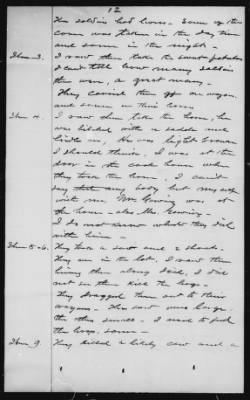 12
The soldiers had horses. Some of the
corn was taken in the day time
and some in the night.
Item 3. I saw them take the sweet potatoes
I can't tell how many soldiers
there were, a great many.
They carried them off on wagons
and some on their horses
Item 4. I saw them take the horse, he
was hitched with a saddle and
bridle on, he was bright sorrel
I should think, I was at the
door in the cook house when
they took the horse. I can't
say that any body but myself
with me. Mr. was at
the house - also Mrs.
I do not know what they did
with him.
Item 5-6. They took a sow and 2 shoats.
They were in the lot, I saw them
him them along side, I did
not see them kill the hogs.
They dragged them out to their
wagons. The sow was large.
the others small. I used to feed
the hogs, some
Item 9. They killed a likely cow and a